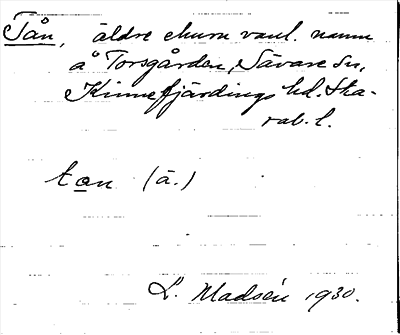 Tån, äldre ehuru vanl. namn
å Torsgården, Sävare sn,
Kinnefjärdings hd. Ska-
rab. l.
tɑn (ä.)
L. Madsén 1930.